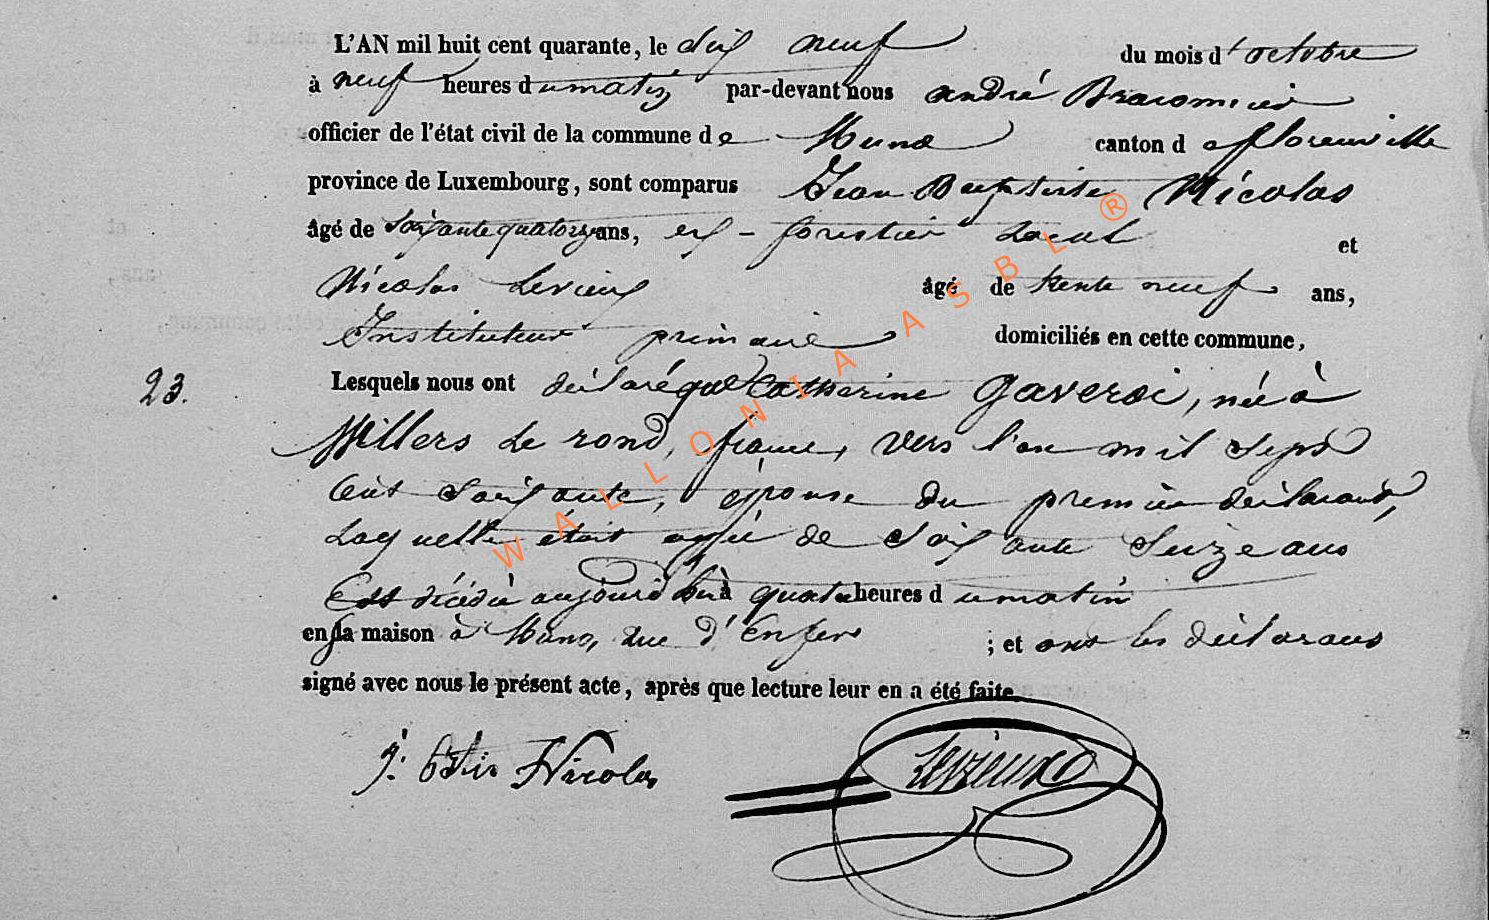 L'AN mil huit cent quarante, le dix neuf du mois d'octobre
à neuf heures du matin par-devant nous andré Braconnier
officier de l'état civil de la commune de Muno canton de florenville
province de Luxembourg, sont comparus Jean Baptiste Nicolas
âgé de soixante quatorze ans, ex-forestier Local et
Nicolas Levieux âgé de trente neuf ans,
Instituteur primaire domiciliés en cette commune,
23. Lesquels nous ont déclaré que Catherine Gaveroi, née à
Villers le rond, france, vers l'an mil sept
cent soixante, épouse du premier déclarant,
Laquelle était agée de soixante seize ans
Est décédée aujourd'hui à quatre heures du matin
en sa maison à Muno, rue d'Enfer ; et ont les déclarans
signé avec nous le présent acte, après que lecture leur en a été faite
J. Btte Nicolas Levieux
WALLONIA ASBL ®